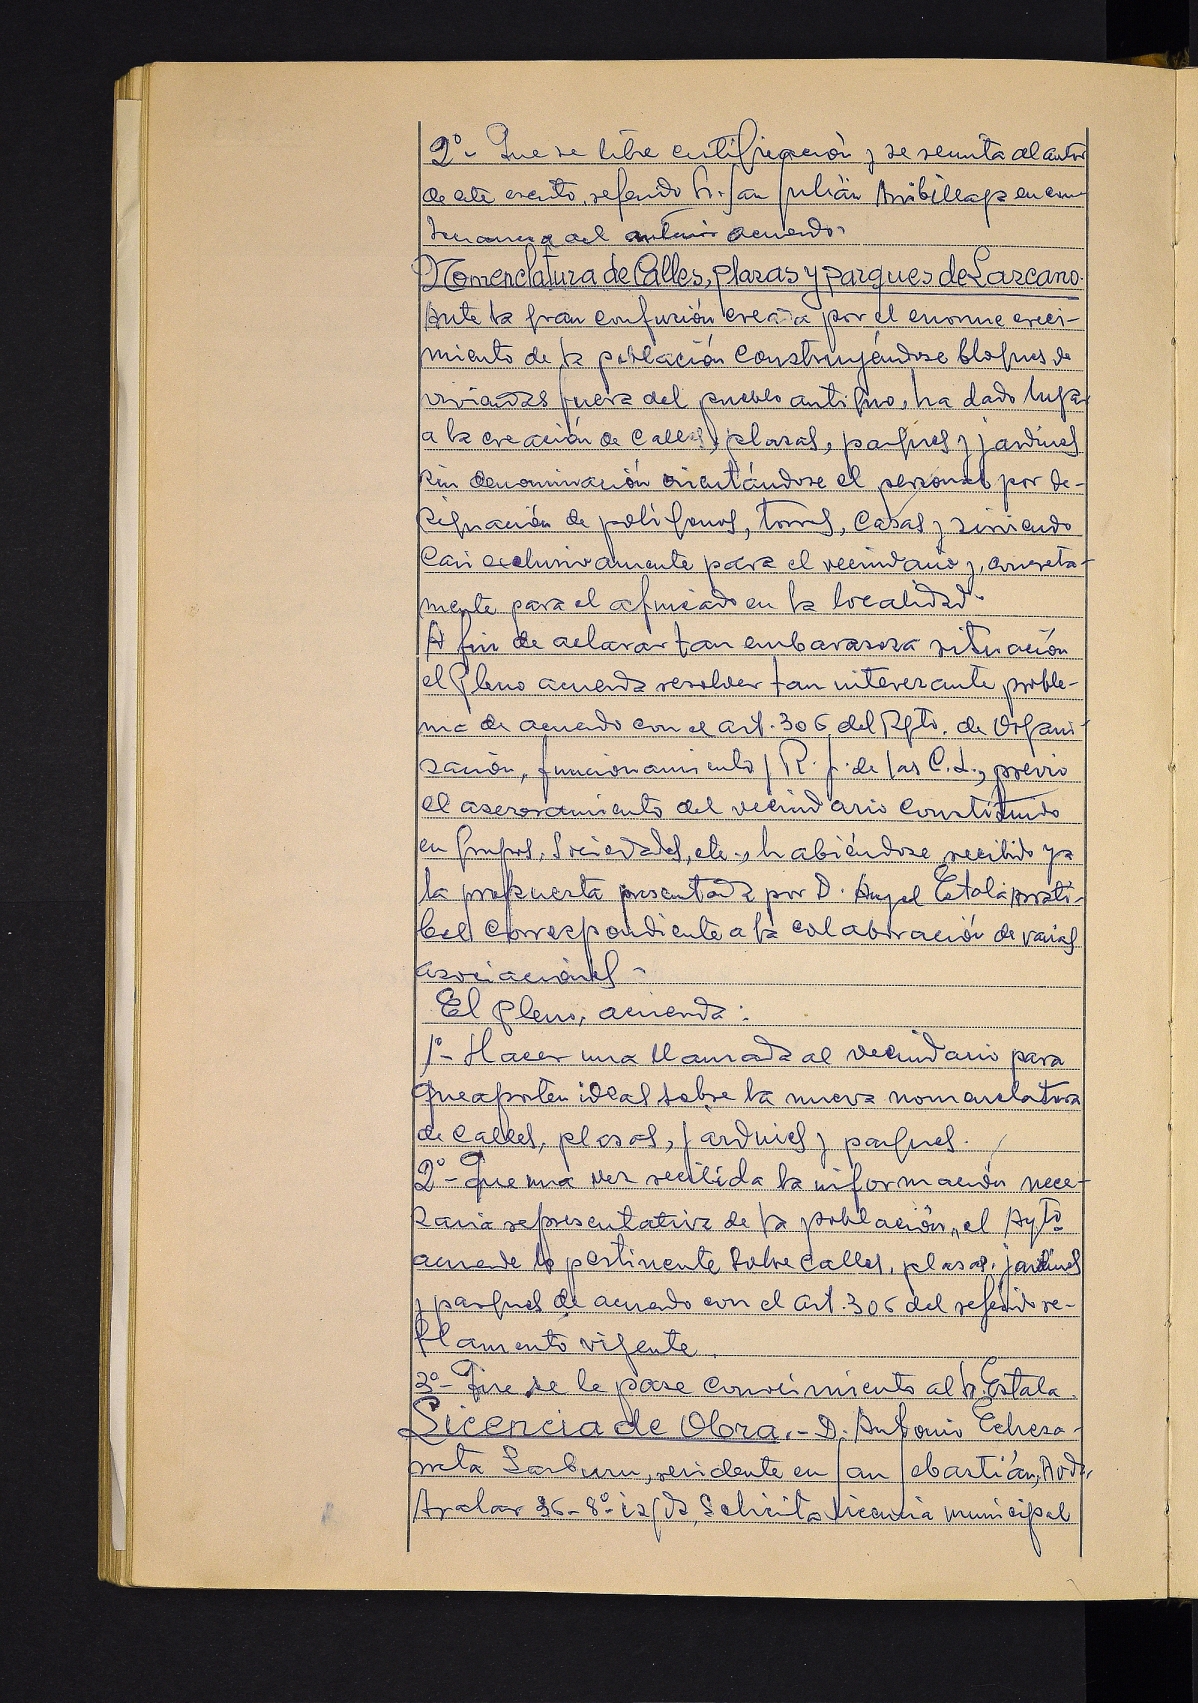 2º- Que se libre certificación y se remita al autor
de este escrito, referido Sr. San Julián Arribillaga en con-
secuencia del anterior acuerdo.
Nomenclatura de Calles, plazas y parques de Lazcano.
Ante la gran confusión creada por el enorme creci-
miento de la población construyéndose bloques de
viviendas fuera del pueblo antiguo, ha dado lugar
a la creación de calles, plazas, parques y jardines
sin denominación orientándose el personal por de-
signación de polígonos, torres, casas y sirviendo
casi exclusivamente para el vecindario y, concreta-
mente para el afincado en la localidad.
A fin de aclarar tan embarazosa situación
el Pleno acuerda resolver tan interesante proble-
ma de acuerdo con el art. 306 del Rgto. de Organi-
zación, funcionamiento y R. J. de las C.L., previo
el asesoramiento del vecindario constituido
en Grupos, Sociedades, etc., habiéndose recibido ya
la propuesta presentada por D. Angel Estala
correspondiente a la colaboración de varias
asociaciones -
El Pleno, acuerda:
1º- Hacer una llamada al vecindario para
que aporten ideas sobre la nueva nomenclatura
de calles, plazas, jardines y parques.
2º- Que una vez recibida la información nece-
saria representativa de la población, el Aytº
acuerde lo pertinente sobre calles, plazas, jardines
y parques de acuerdo con el art. 306 del referido re-
glamento vigente.
3º- Que se le pase conocimiento al Sr. Estala.
Licencia de Obra.- D. Antonio Echeza-
rreta Lasburu, residente en San Sebastián, Avda.
Aralar 36-8º-izqda, Solicita licencia municipal